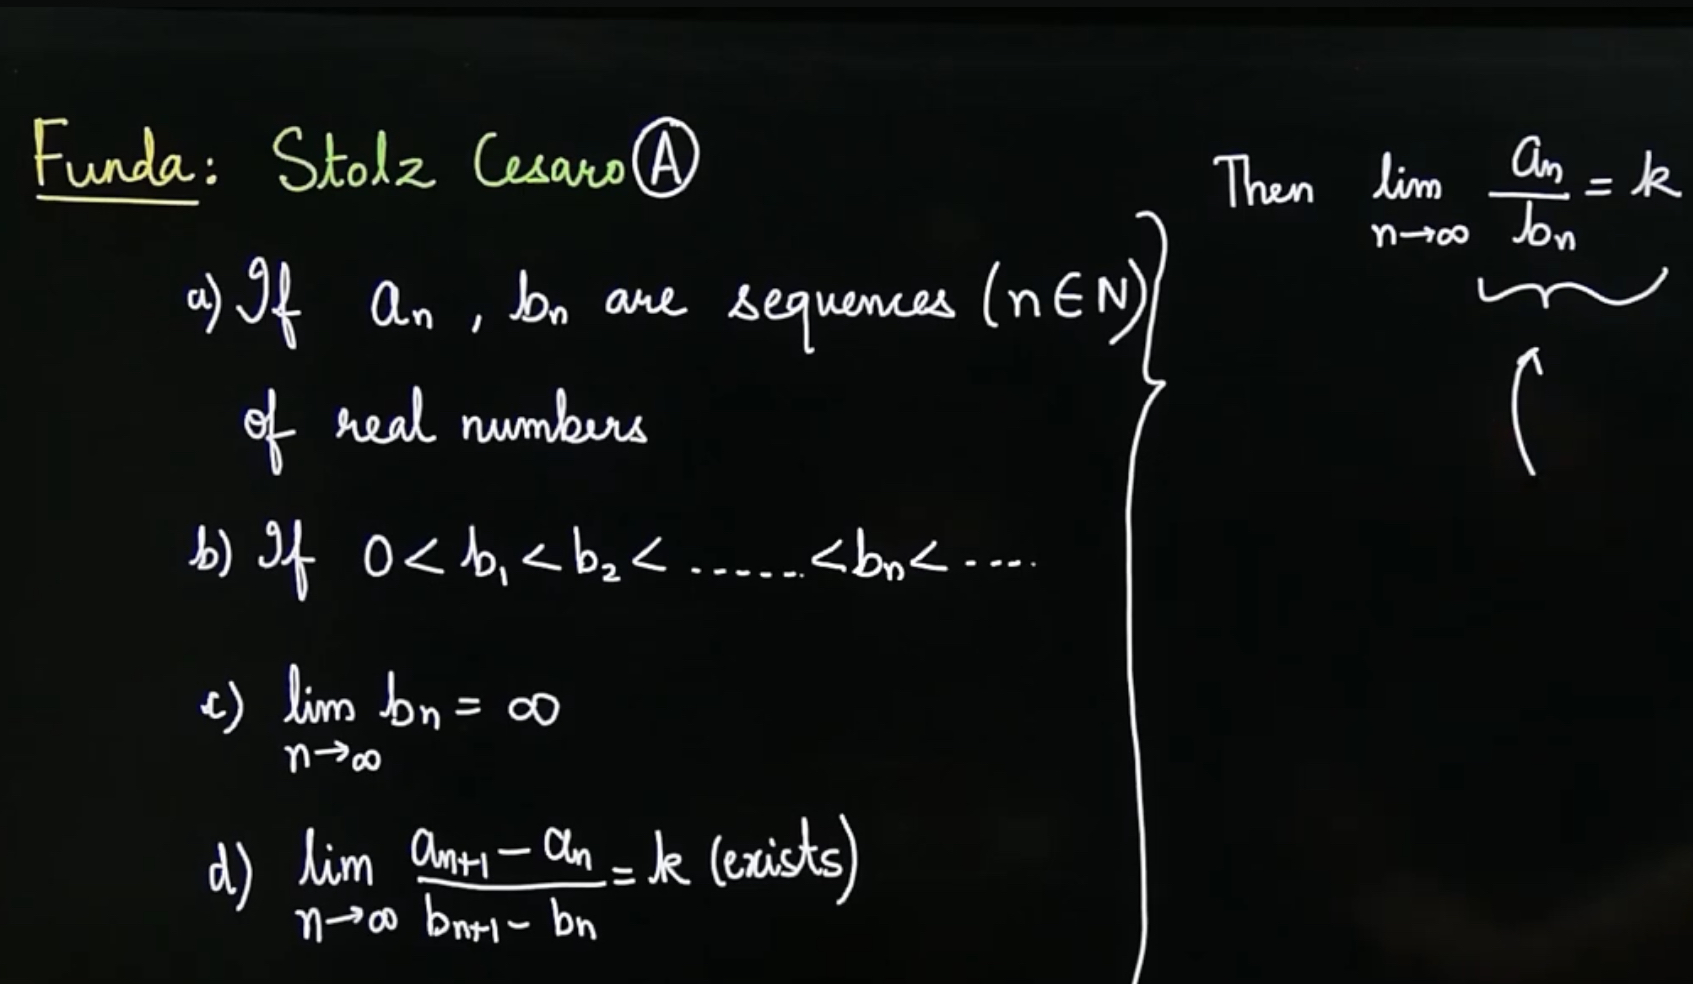 Funda: Stolz Cesaro Ⓐ
a) If aₙ, bₙ are sequences (n ∈ N)
of real numbers
b) If 0 < b₁ < b₂ < ...... < bₙ < ....
c) lim_{n→∞} bₙ = ∞
d) lim_{n→∞} (aₙ₊₁ − aₙ)/(bₙ₊₁ − bₙ) = k (exists)
Then lim_{n→∞} aₙ/bₙ = k